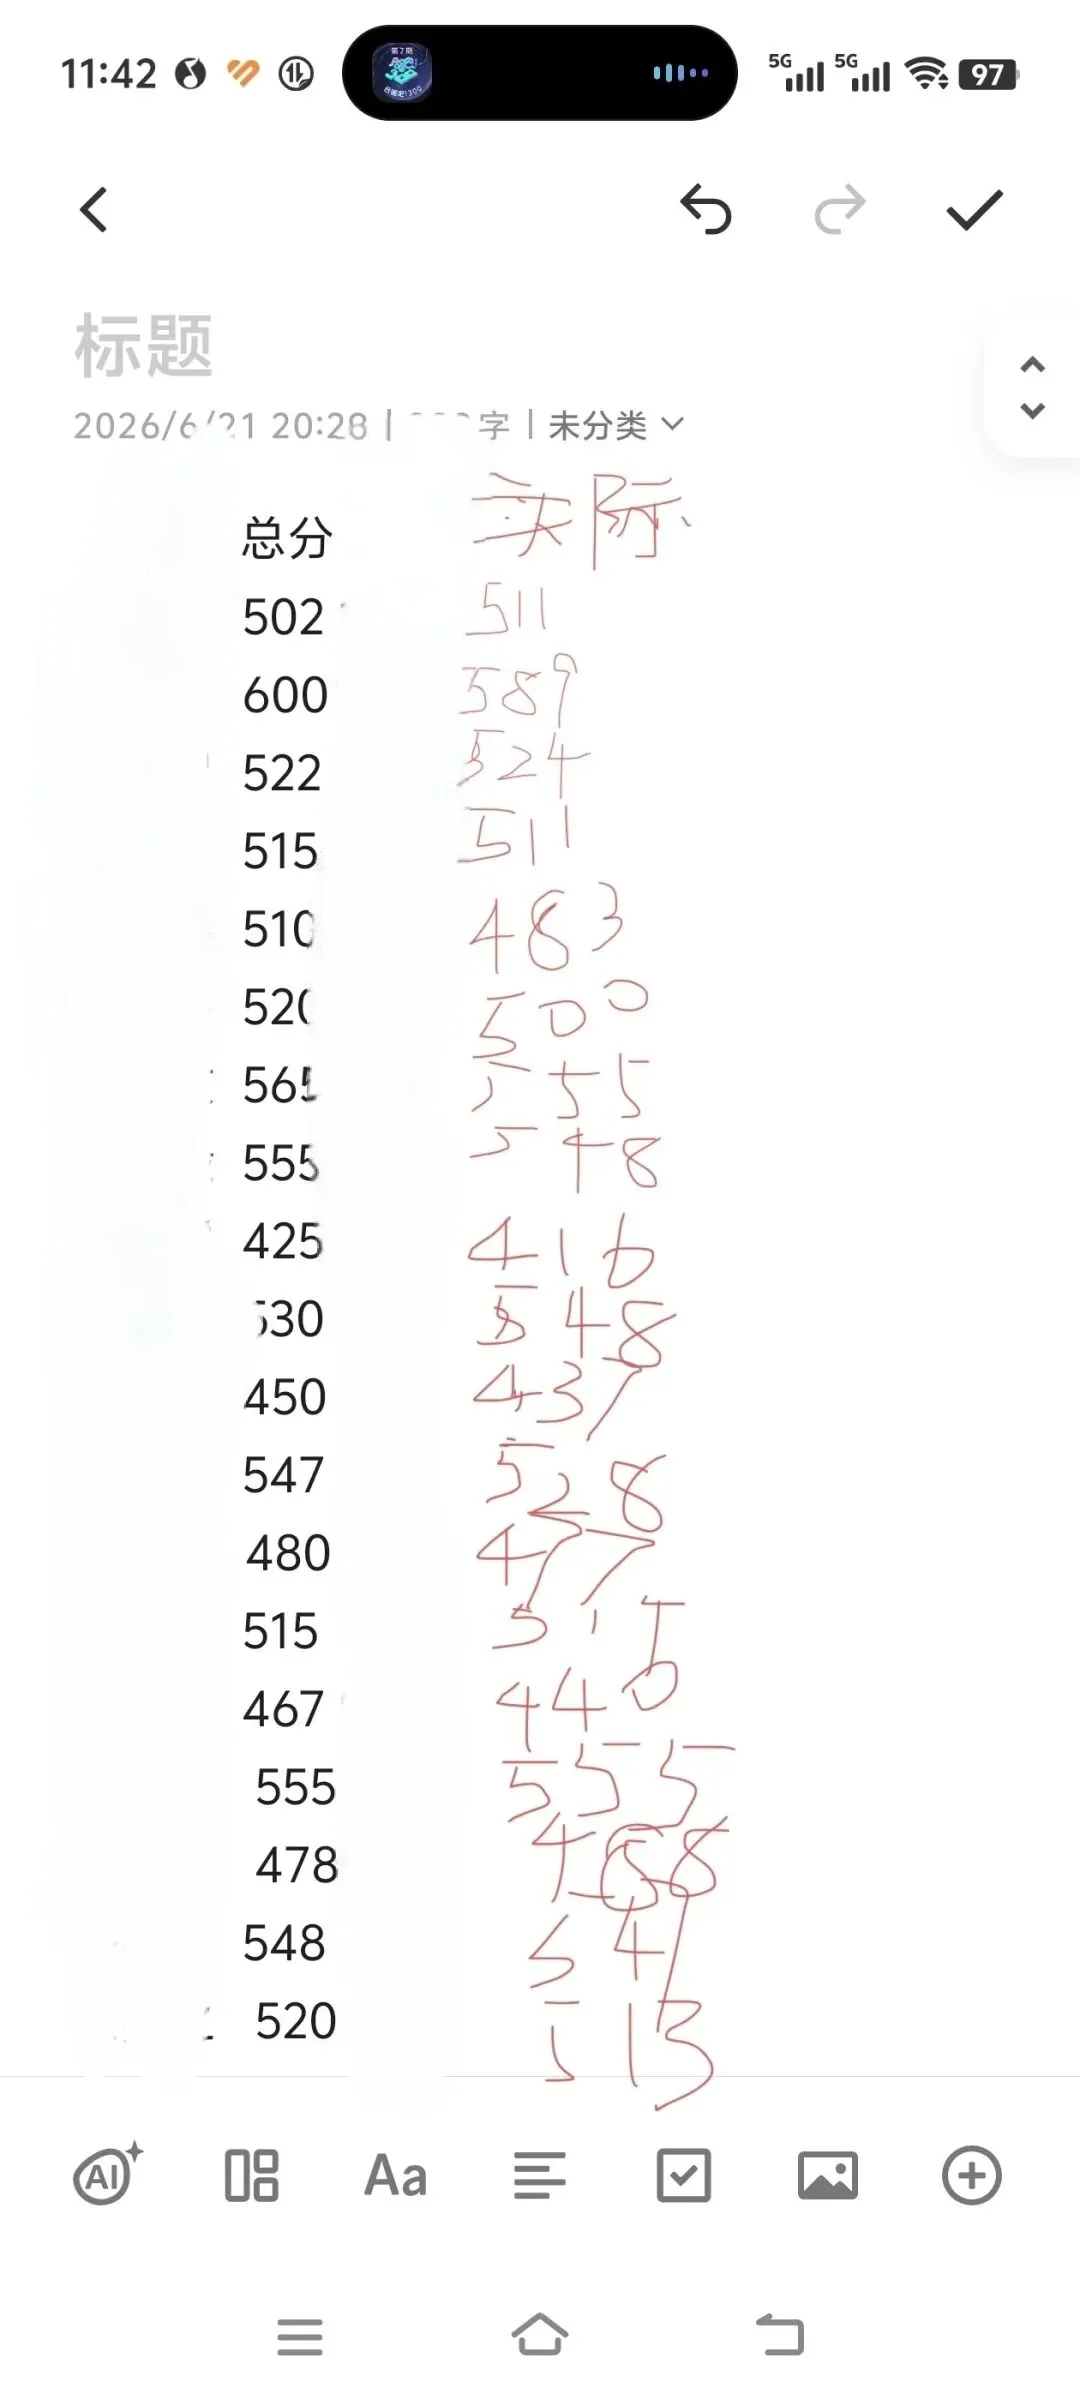 11:42
第2期
5G 5G 97
标题
2026/6/21 20:28 | 字 | 未分类
总分 实际
502 511
600 589
522 524
515 511
510 483
520 500
565 555
555 548
425 416
530 548
450 437
547 528
480 477
515 515
467 440
555 555
478 468
548 541
520 513
AI Aa